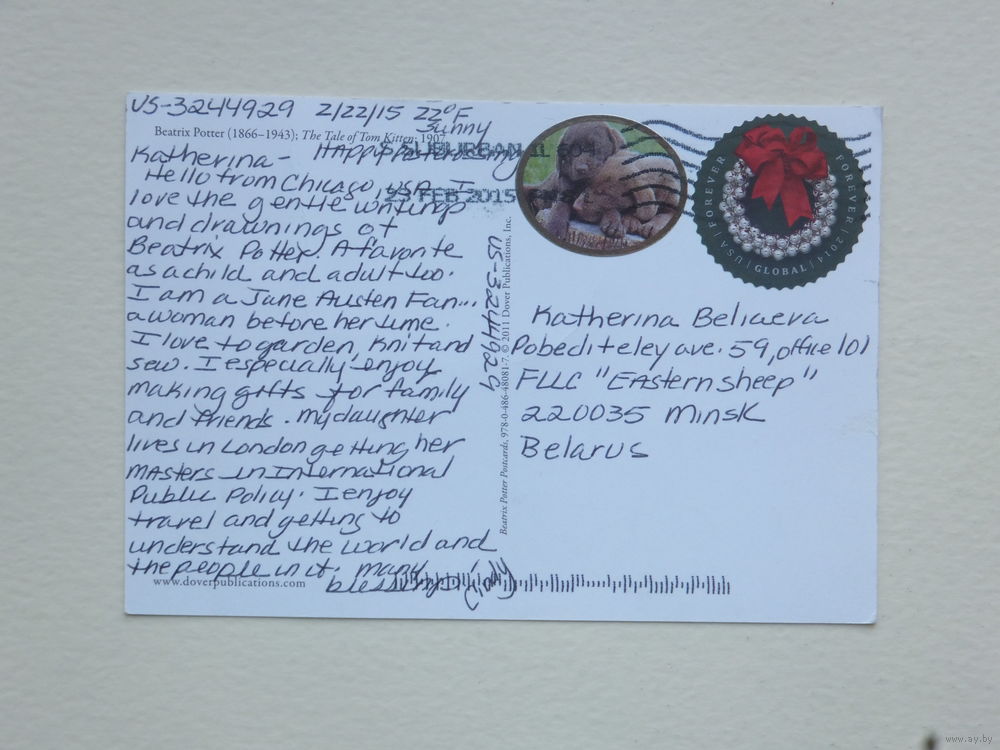 US-3244929 2/22/15 22°F
Sunny
Beatrix Potter (1866–1943); The Tale of Tom Kitten; 1907
Katherina - Happy Postcrossing
S SUBURBAN IL 604
Hello from Chicago, USA. I
23 FEB 2015 PM
love the gentle writings
and drawings of
Beatrix Potter. A favorite
as a child and adult too.
I am a Jane Austen Fan...
a woman before her time.
I love to garden, knit and
sew. I especially enjoy
making gifts for family
and friends. My daughter
lives in London getting her
Masters in International
Public Policy. I enjoy
travel and getting to
understand the world and
the people in it. Many
blessings,
www.doverpublications.com
US-3244929
Beatrix Potter Postcards, 978-0-486-48081-7, © 2011 Dover Publications, Inc.
FOREVER
USA | GLOBAL | 2014
FOREVER
Katherina Beliaeva
Pobediteley ave. 59, office 101
FLLC "Easternsheep"
220035 Minsk
Belarus
www.ay.by